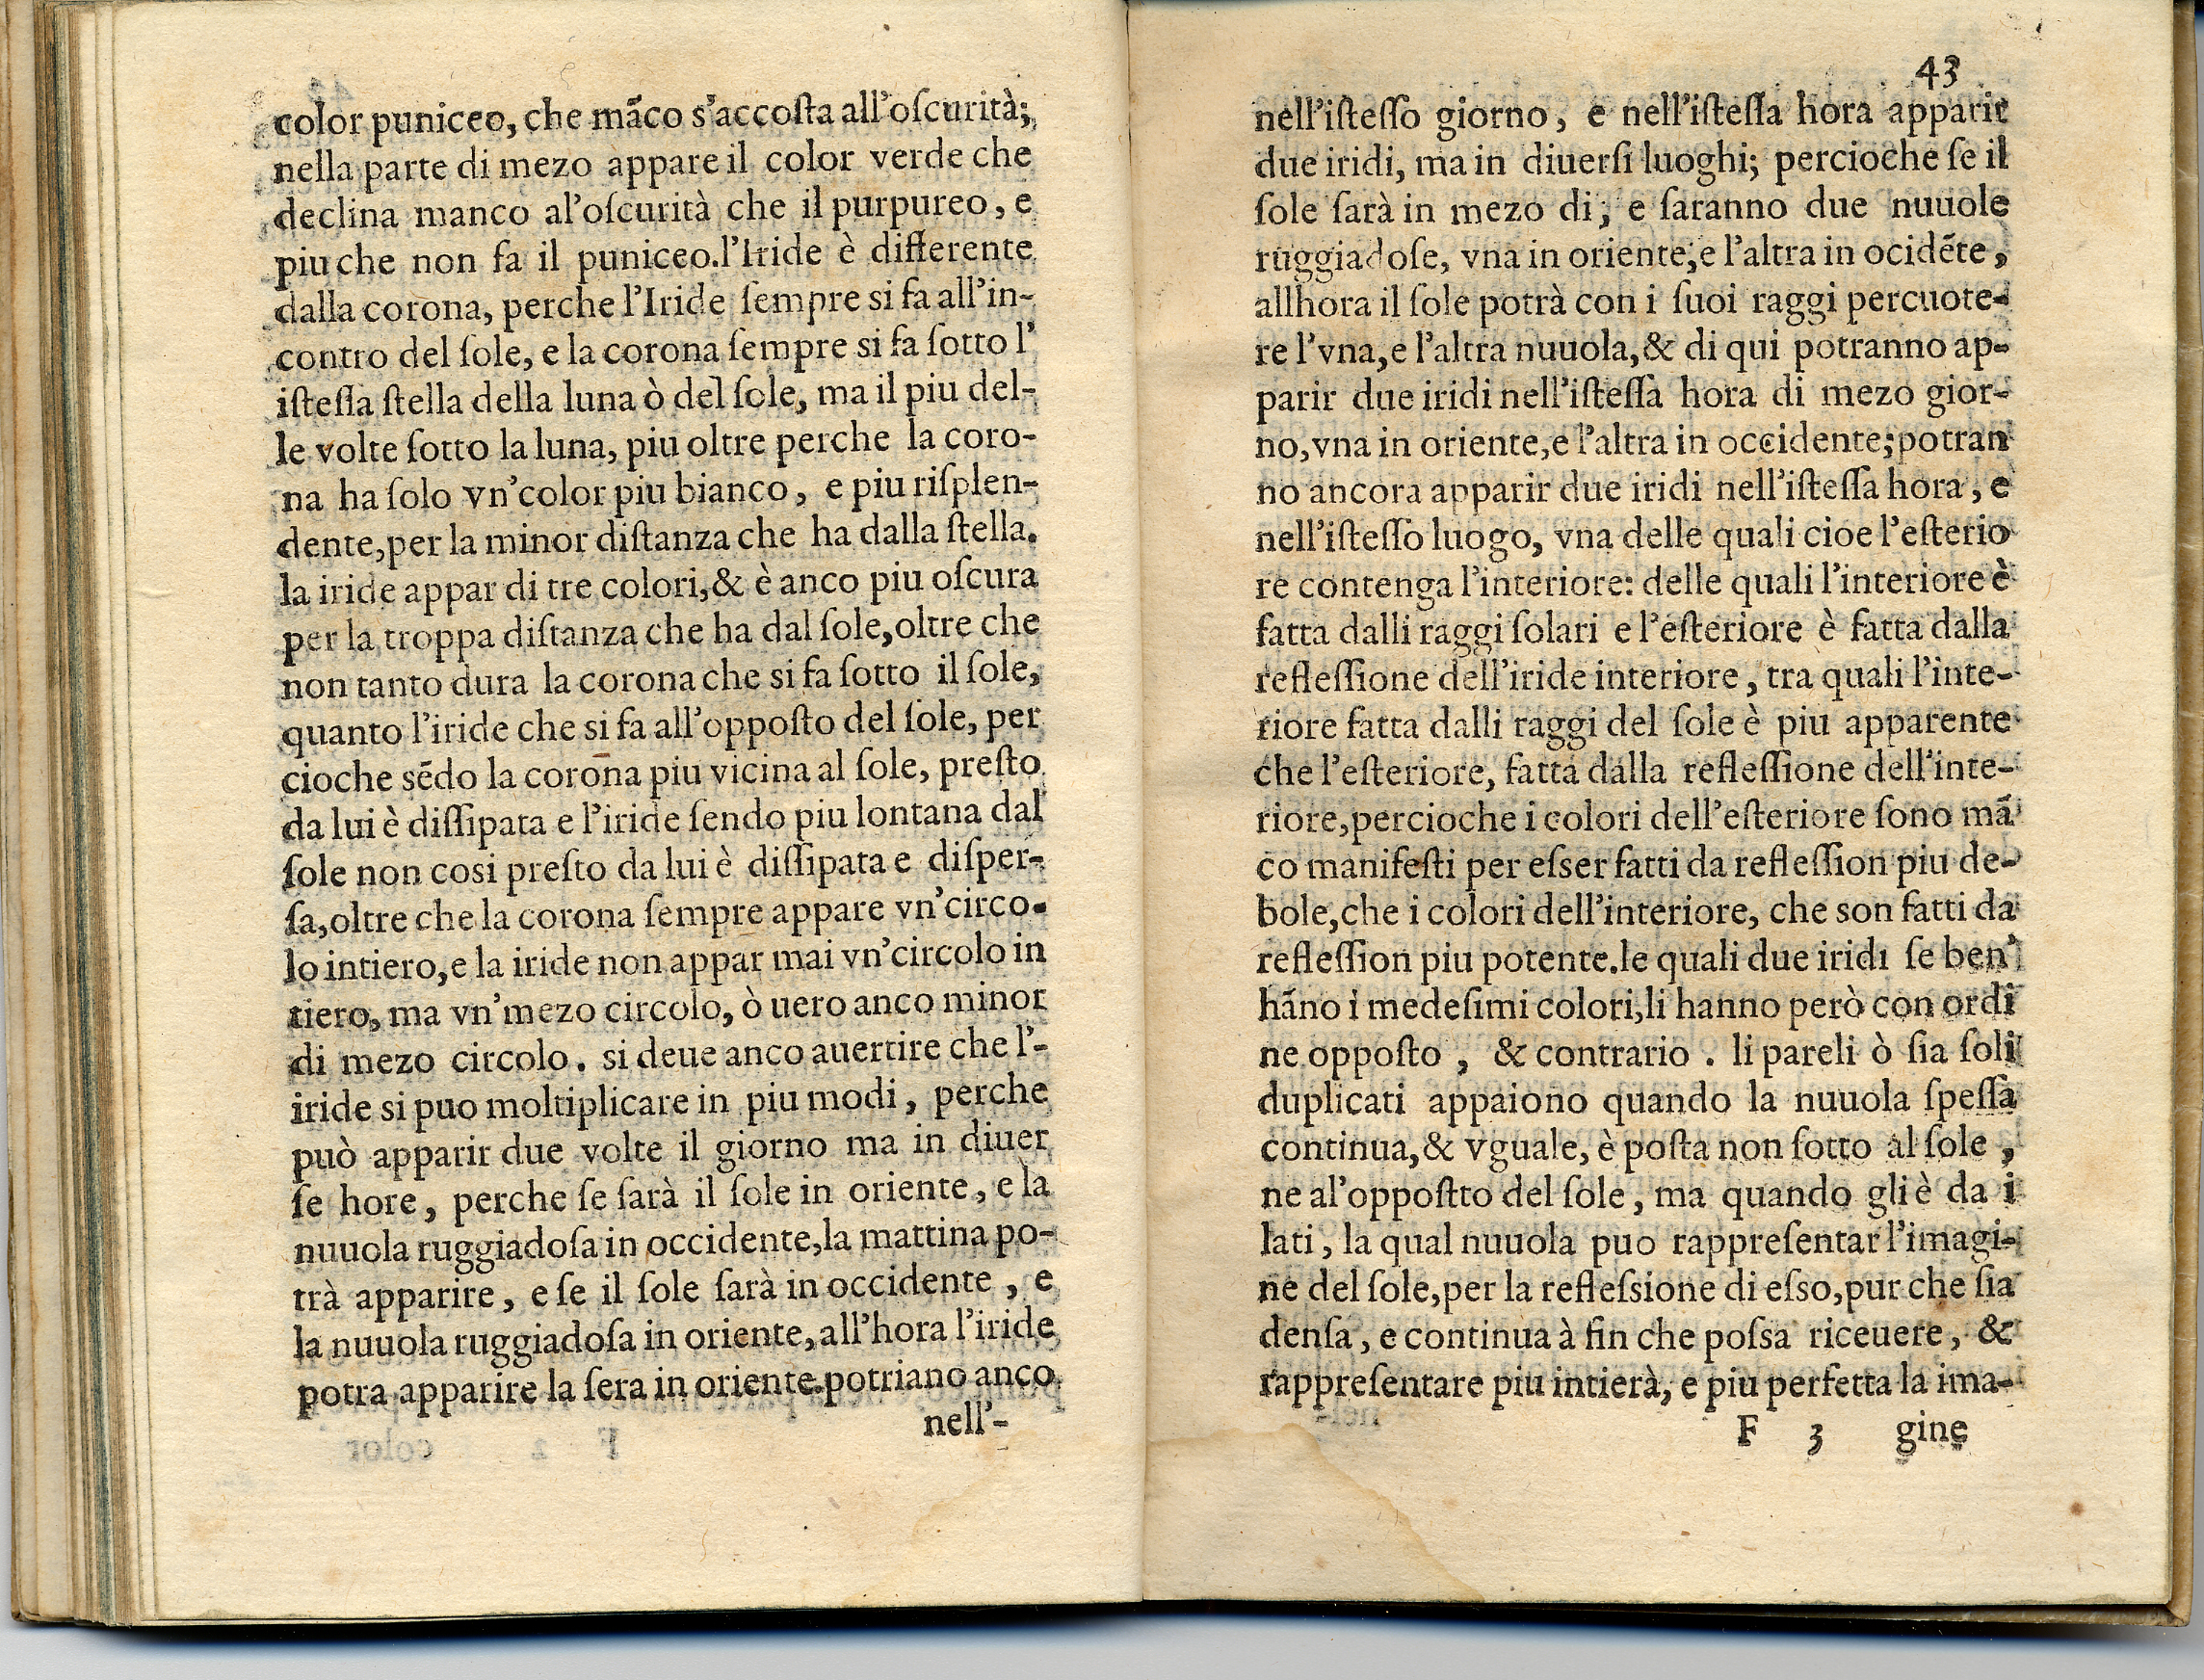 color puniceo, che mãco s'accoſta all'oſcurità;
nella parte di mezo appare il color verde che
declina manco al'oſcurità che il purpureo, e
piu che non fa il puniceo.l'Iride è differente
dalla corona, perche l'Iride ſempre si fa all'in-
contro del ſole, e la corona ſempre si fa ſotto l'
iſteſſa ſtella della luna ò del ſole, ma il piu del-
le volte ſotto la luna, piu oltre perche la coro-
na ha ſolo vn'color piu bianco, e piu riſplen-
dente,per la minor diſtanza che ha dalla ſtella.
la iride appar di tre colori,& è anco piu oſcura
per la troppa diſtanza che ha dal ſole,oltre che
non tanto dura la corona che si fa ſotto il ſole,
quanto l'iride che si fa all'oppoſto del ſole, per
cioche sẽdo la corona piu vicina al ſole, preſto
da lui è diſſipata e l'iride ſendo piu lontana dal
ſole non cosi preſto da lui è diſſipata e diſper-
ſa,oltre che la corona ſempre appare vn'circo-
lo intiero,e la iride non appar mai vn'circolo in
tiero, ma vn'mezo circolo, ò uero anco minor
di mezo circolo. si deue anco auertire che l'-
iride si puo moltiplicare in piu modi, perche
può apparir due volte il giorno ma in diuer
ſe hore, perche ſe ſarà il ſole in oriente, e la
nuuola ruggiadoſa in occidente,la mattina po-
trà apparire, e ſe il ſole ſarà in occidente, e
la nuuola ruggiadoſa in oriente,all'hora l'iride
potra apparire la ſera in oriente.potriano anco
nell'-
43
nell'iſteſſo giorno, e nell'iſteſſa hora apparir
due iridi, ma in diuerſi luoghi; percioche ſe il
ſole ſarà in mezo di, e ſaranno due nuuole
ruggiadoſe, vna in oriente,e l'altra in ocidẽte,
allhora il ſole potrà con i ſuoi raggi percuote-
re l'vna,e l'altra nuuola,& di qui potranno ap-
parir due iridi nell'iſteſſa hora di mezo gior-
no,vna in oriente,e l'altra in occidente;potran
no ancora apparir due iridi nell'iſteſſa hora, e
nell'iſteſſo luogo, vna delle quali cioe l'eſterio
re contenga l'interiore: delle quali l'interiore è
fatta dalli raggi ſolari e l'eſteriore è fatta dalla
refleſſione dell'iride interiore, tra quali l'inte-
riore fatta dalli raggi del ſole è piu apparente
che l'eſteriore, fatta dalla refleſſione dell'inte-
riore,percioche i colori dell'eſteriore ſono mã
co manifeſti per eſser fatti da refleſſion piu de-
bole,che i colori dell'interiore, che son fatti da
refleſſion piu potente.le quali due iridi ſe ben'
hãno i medeſimi colori,li hanno però con ordi
ne oppoſto, & contrario. li pareli ò ſia ſoli
duplicati appaiono quando la nuuola ſpeſſa
continua,& vguale, è poſta non ſotto al ſole,
ne al'oppoſtto del ſole, ma quando gli è da i
lati, la qual nuuola puo rappreſentar l'imagi-
ne del ſole,per la refleſsione di eſso,pur che ſia
denſa, e continua à fin che poſsa riceuere, &
rappreſentare piu intierà, e piu perfetta la ima-
F 3 gine